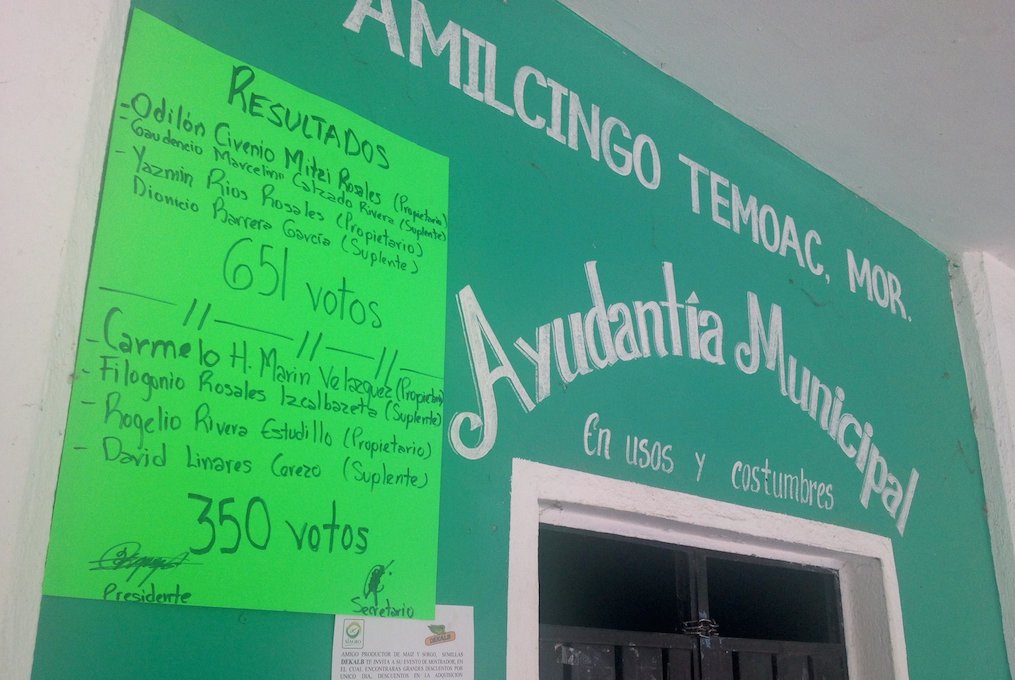 RESULTADOS
- Odilón Civenio Mitzi Rosales (Propietario)
- Gaudencio Marcelino Calzado Rivera (Suplente)
- Yazmin Rios Rosales (Propietario)
Dionicio Barrera García (Suplente)
651 votos
— // — // — // —
- Carmelo H. Marin Velazquez (Propietario)
- Filogonio Rosales Izcalbazeta (Suplente)
- Rogelio Rivera Estudillo (Propietario)
- David Linares Cerezo (Suplente)
350 votos
Presidente
Secretario
AMILCINGO TEMOAC, MOR.
Ayudantía Municipal
En usos y costumbres
DEKALB
AMIGO PRODUCTOR DE MAIZ Y SORGO, SEMILLAS
DEKALB TE INVITA A SU EVENTO DE MOSTRADOR, EN
EL CUAL ENCONTRARAS GRANDES DESCUENTOS POR
UNICO DIA, DESCUENTOS EN LA ADQUISICION